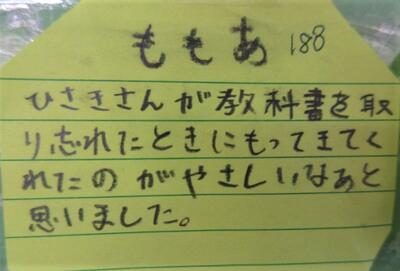 ももあ 188
ひさきさんが教科書を取
り忘れたときにもってきてく
れたのがやさしいなぁと
思いました。